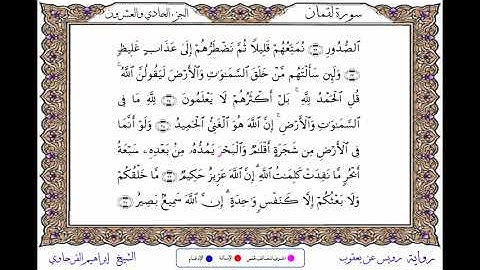 سورة لقمان الجزء الحادي والعشرون
الصُّدُورِ نُمَتِّعُهُمْ قَلِيلاً ثُمَّ نَضْطَرُّهُمْ إِلَى عَذَابٍ غَلِيظٍ
وَلَئِن سَأَلْتَهُم مَّنْ خَلَقَ السَّمَٰوَٰتِ وَالْأَرْضَ لَيَقُولُنَّ اللَّهُ ۚ
قُلِ الْحَمْدُ لِلَّهِ ۚ بَلْ أَكْثَرُهُمْ لَا يَعْلَمُونَ لِلَّهِ مَا فِى
السَّمَٰوَٰتِ وَالْأَرْضِ ۚ إِنَّ اللَّهَ هُوَ الْغَنِىُّ الْحَمِيدُ وَلَوْ أَنَّمَا
فِى الْأَرْضِ مِن شَجَرَةٍ أَقْلَٰمٌ وَالْبَحْرَ يَمُدُّهُ مِنۢ بَعْدِهِ سَبْعَةُ
أَبْحُرٍ مَّا نَفِدَتْ كَلِمَٰتُ اللَّهِ ۗ إِنَّ اللَّهَ عَزِيزٌ حَكِيمٌ مَّا خَلْقُكُمْ
وَلَا بَعْثُكُمْ إِلَّا كَنَفْسٍ وَٰحِدَةٍ ۗ إِنَّ اللَّهَ سَمِيعٌ بَصِيرٌ
رواية رويس عن يعقوب الإمالة الإدغام الشيخ إبراهيم القرجاوي